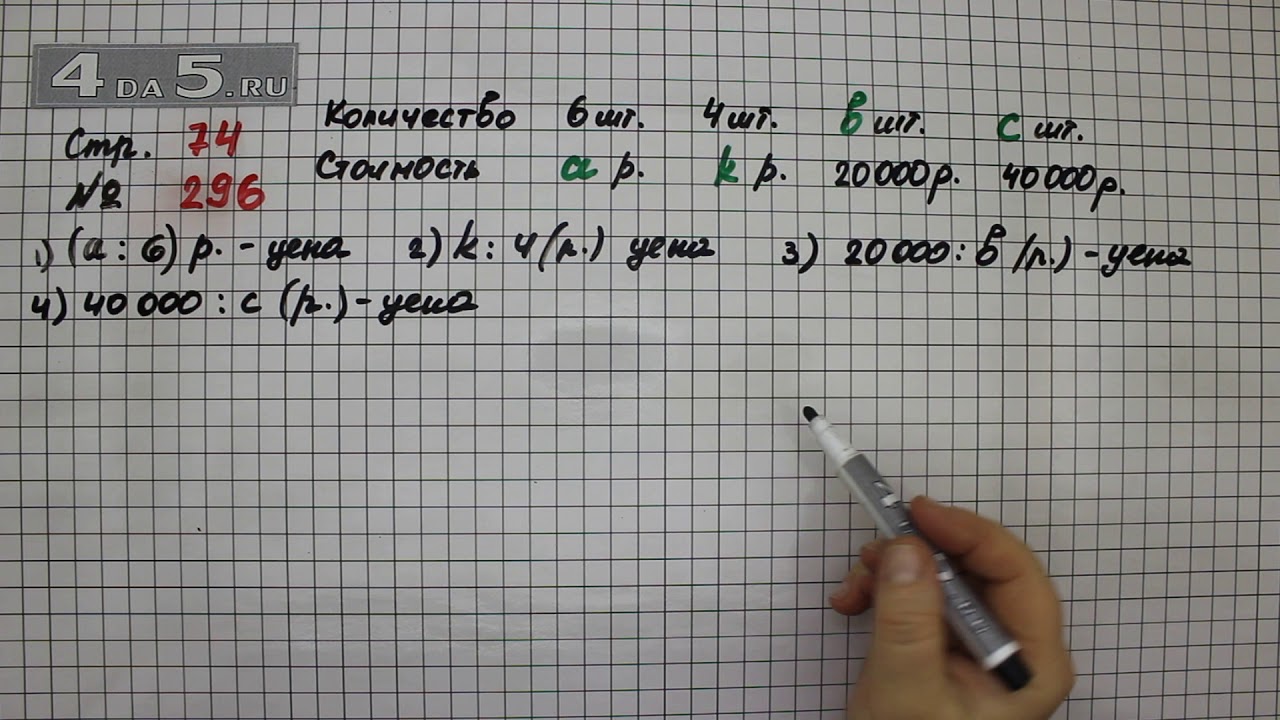 4DA5.RU
Стр. 74
№ 296
Количество 6 шт. 4 шт. в шт. с шт.
Стоимость а р. k р. 20 000 р. 40 000 р.
1) (а : 6) р. - цена 2) k : 4 (р.) цена 3) 20 000 : в (р.) - цена
4) 40 000 : с (р.) - цена